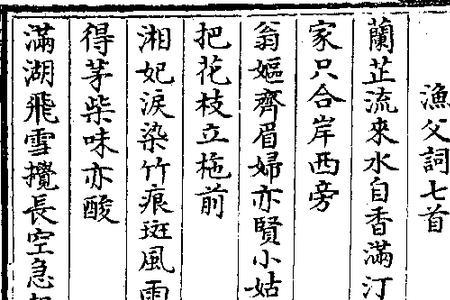 漁父詞七首
蘭芷流來水自香滿汀
家只合岸西旁
翁嫗齊眉婦亦賢小姑
把花枝立柂前
湘妃淚染竹痕斑風雨
得茅柴味亦酸
滿湖飛雪攪長空急